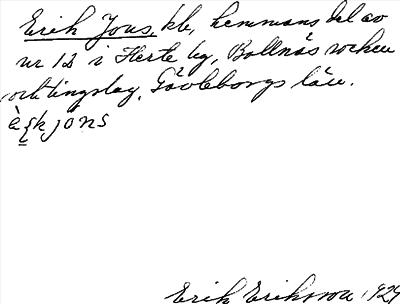 Erik Jons, kb, hemmansdel av
nr 12 i Herte by, Bollnäs socken
och tingslag, Gävleborgs län.
Erik Eriksson 1929